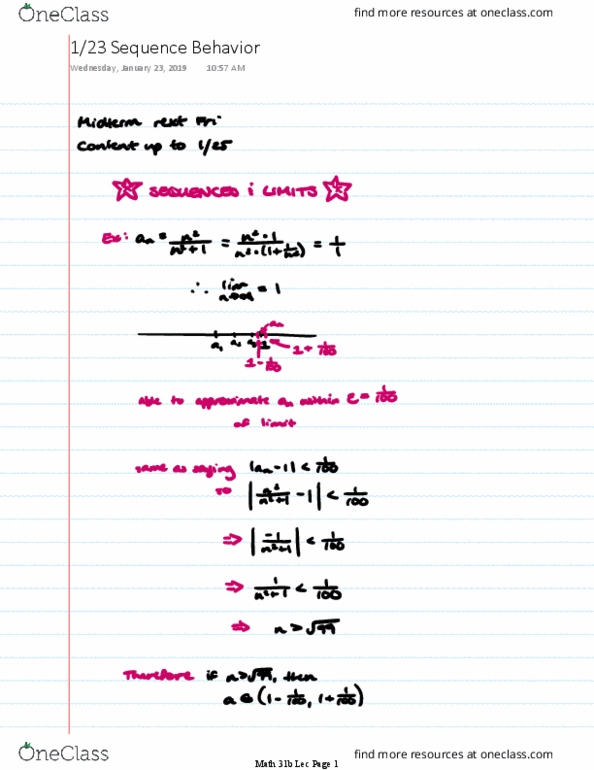 OneClass
find more resources at oneclass.com
1/23 Sequence Behavior
Wednesday, January 23, 2019 10:57 AM
Midterm next Fri
Content up to 1/25
SEQUENCES & LIMITS
Ex: aₙ = n²/(n²+1) = (n²·1)/(n²·(1+1/n²)) = 1/1
∴ lim n→∞ = 1
aₙ
a₁ a₂ a₃ 1
1 + 1/100
1 - 1/100
able to approximate aₙ within ε = 1/100
of limit
same as saying |aₙ-1| < 1/100
so |n²/(n²+1) - 1| < 1/100
⇒ |-1/(n²+1)| < 1/100
⇒ 1/(n²+1) < 1/100
⇒ n > √99
Therefore if n>√99, then
a ∈ (1 - 1/100, 1 + 1/100)
OneClass
find more resources at oneclass.com
Math 31b Lec Page 1